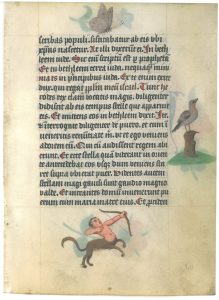 scribas populi, sciscitabatur ab eis ubi
xpūs nasceretur. At illi dixerunt ei. In beth
leem iude. Sic em̄ scriptū est p prophetā
Et tu bethleem terra iuda. nequaq̄ mini
ma es in principibus iuda. Ex te enim exiet
dux, qui regat pplm̄ meū israel. Tunc he
rodes clam vocatis magis. diligenter
didicit ab eis tempus stelle que apparuit
eis. Et mittens eos in bethleem dixit. Ite,
&amp; interrogate diligenter de puero. et cum i
ueneritis renunciate m. ut et ego veniens
adorem eū. Qui cū audissent regem abie
runt. Et ecce stella quā viderant in orien
te antecedebat eos usq̄ dum veniens sta
ret supra ubi erat puer. Videntes autem
stellam magi gauisi sunt gaudio magno
valde. Et intrantes domū inuenerunt pu
erum cum maria matre eius. Et proiden